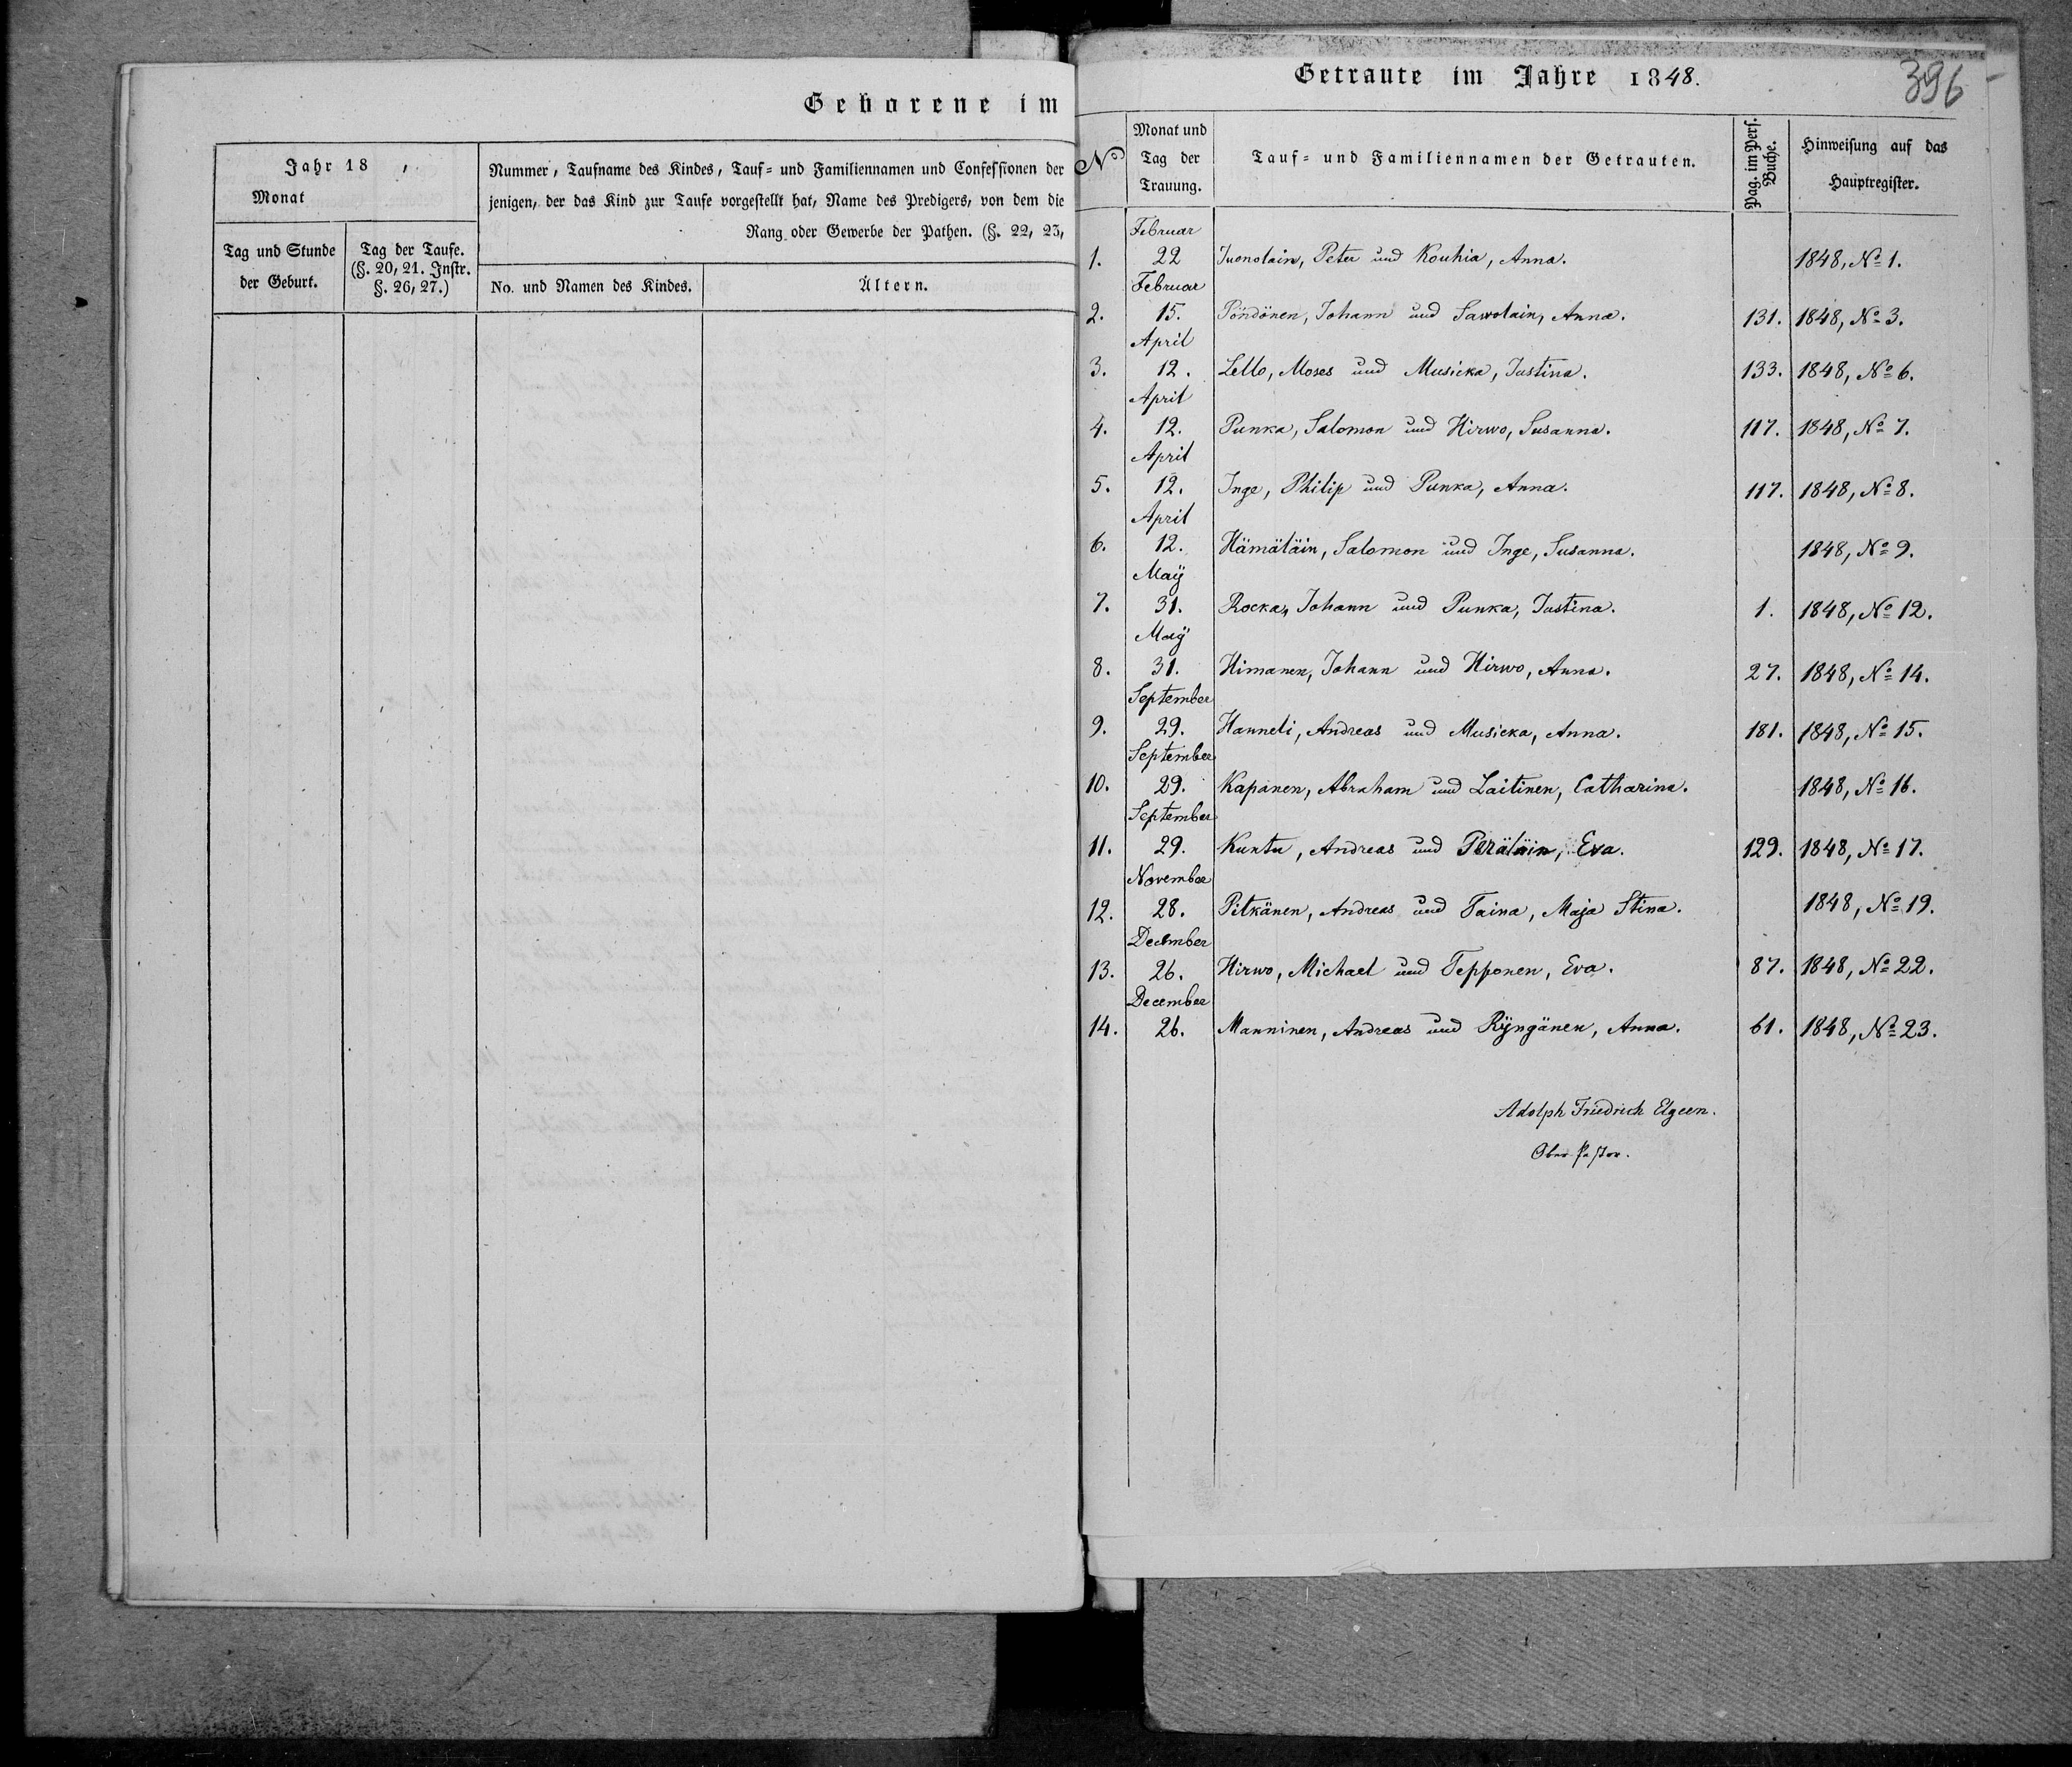 Geborene im
Jahr 18 ,
Monat
Nummer, Taufname des Kindes, Tauf- und Familiennamen und Confessionen der
jenigen, der das Kind zur Taufe vorgestellt hat, Name des Predigers, von dem die
Rang oder Gewerbe der Pathen. (§. 22, 23,
Tag und Stunde der Geburt.
Tag der Taufe. (§. 20, 21. Instr. §. 26, 27.)
No. und Namen des Kindes.
Ältern.
Getraute im Jahre 1848.
396
No
Monat und Tag der Trauung.
Tauf- und Familiennamen der Getrauten.
Pag. im Pers. Buche.
Hinweisung auf das Hauptregister.
Februar
1. 22 Juonolain, Peter und Kouhia, Anna. 1848, No 1.
Februar
2. 15. Pöndönen, Johann und Sawolain, Anna. 131. 1848, No 3.
April
3. 12. Lello, Moses und Musicka, Justina. 133. 1848, No 6.
April
4. 12. Punka, Salomon und Hirwo, Susanna. 117. 1848, No 7.
April
5. 12. Inge, Philip und Punka, Anna. 117. 1848, No 8.
April
6. 12. Hämäläin, Salomon und Inge, Susanna. 1848, No 9.
Maÿ
7. 31. Rocka, Johann und Punka, Justina. 1. 1848, No 12.
Maÿ
8. 31. Himanen, Johann und Hirwo, Anna. 27. 1848, No 14.
September
9. 29. Hanneli, Andreas und Musicka, Anna. 181. 1848, No 15.
September
10. 29. Kapanen, Abraham und Laitinen, Catharina. 1848, No 16.
September
11. 29. Kuntu, Andreas und Peräläin, Eva. 129. 1848, No 17.
November
12. 28. Pitkänen, Andreas und Taina, Maja Stina. 1848, No 19.
December
13. 26. Hirwo, Michael und Tepponen, Eva. 87. 1848, No 22.
December
14. 26. Manninen, Andreas und Rÿngänen, Anna. 61. 1848, No 23.
Adolph Friedrich Elgeen.
Ober-Pastor.